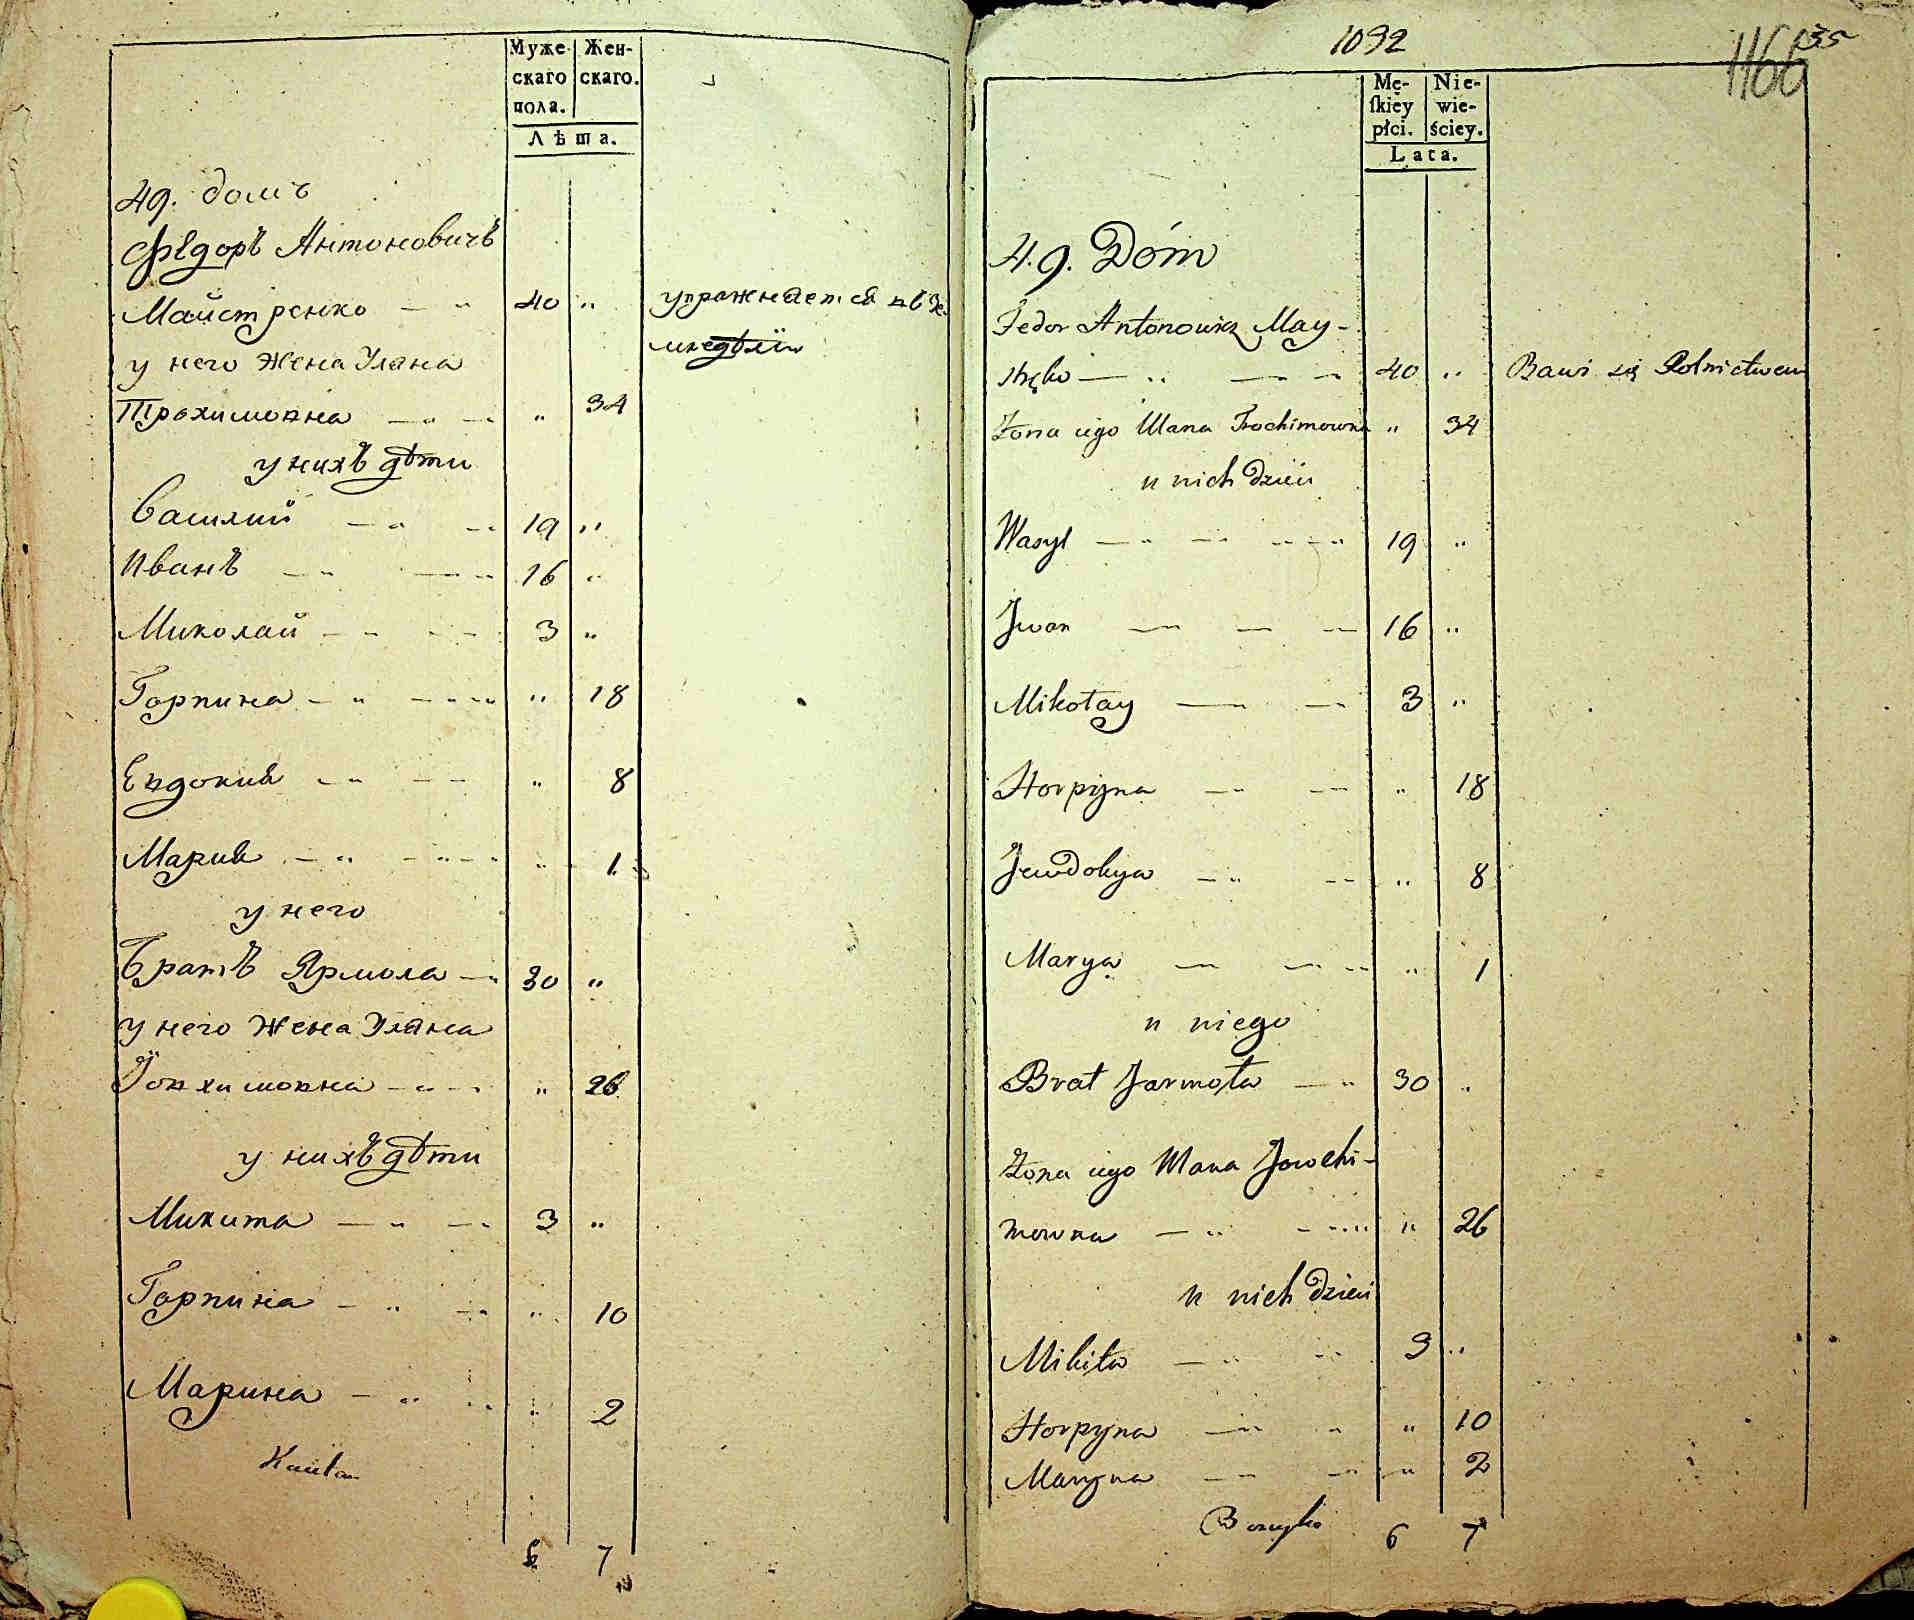 Муже-
скаго
пола.
Жен-
скаго.
Лѣта.
49. домъ
Федоръ Антоновичъ
Майстренко — " 40 "
упражняется въ зе-
мледѣліи
у него жена Уляна
Трохимовна — " — " 34
у нихъ дѣти
Василий — " — 19 "
Иванъ — " — " 16 "
Миколай — " — 3 "
Горпина — " — " " 18
Евдокия — " — " 8
Мария — " — " " 1
у него
Братъ Ярмола — " 30 "
у него жена Уляна
Іовхимовна — " — " 26
у нихъ дѣти
Микита — " — 3 "
Горпина — " — " " 10
Марина — " " 2
6 7
1032
1166
35
Mę-
skiey
płci.
Nie-
wie-
ściey.
Lata.
49. Dóm
Fedor Antonowicz May-
stręko — " — 40 " Bawi się Rolnictwem
Żona iego Ulana Trochimowna " 34
u nich dzieci
Wasyl — " — " 19 "
Jwan — " — 16 "
Mikołay — " — 3 "
Horpyna — " — " 18
Jewdokya — " — " 8
Marya — " — " 1
u niego
Brat Jarmoła — " 30 "
Żona iego Ulana Jowchi-
mowna — " — " " 26
u nich dzieci
Mikita — " — 3 "
Horpyna — " " " 10
Maryna — " — " 2
6 7